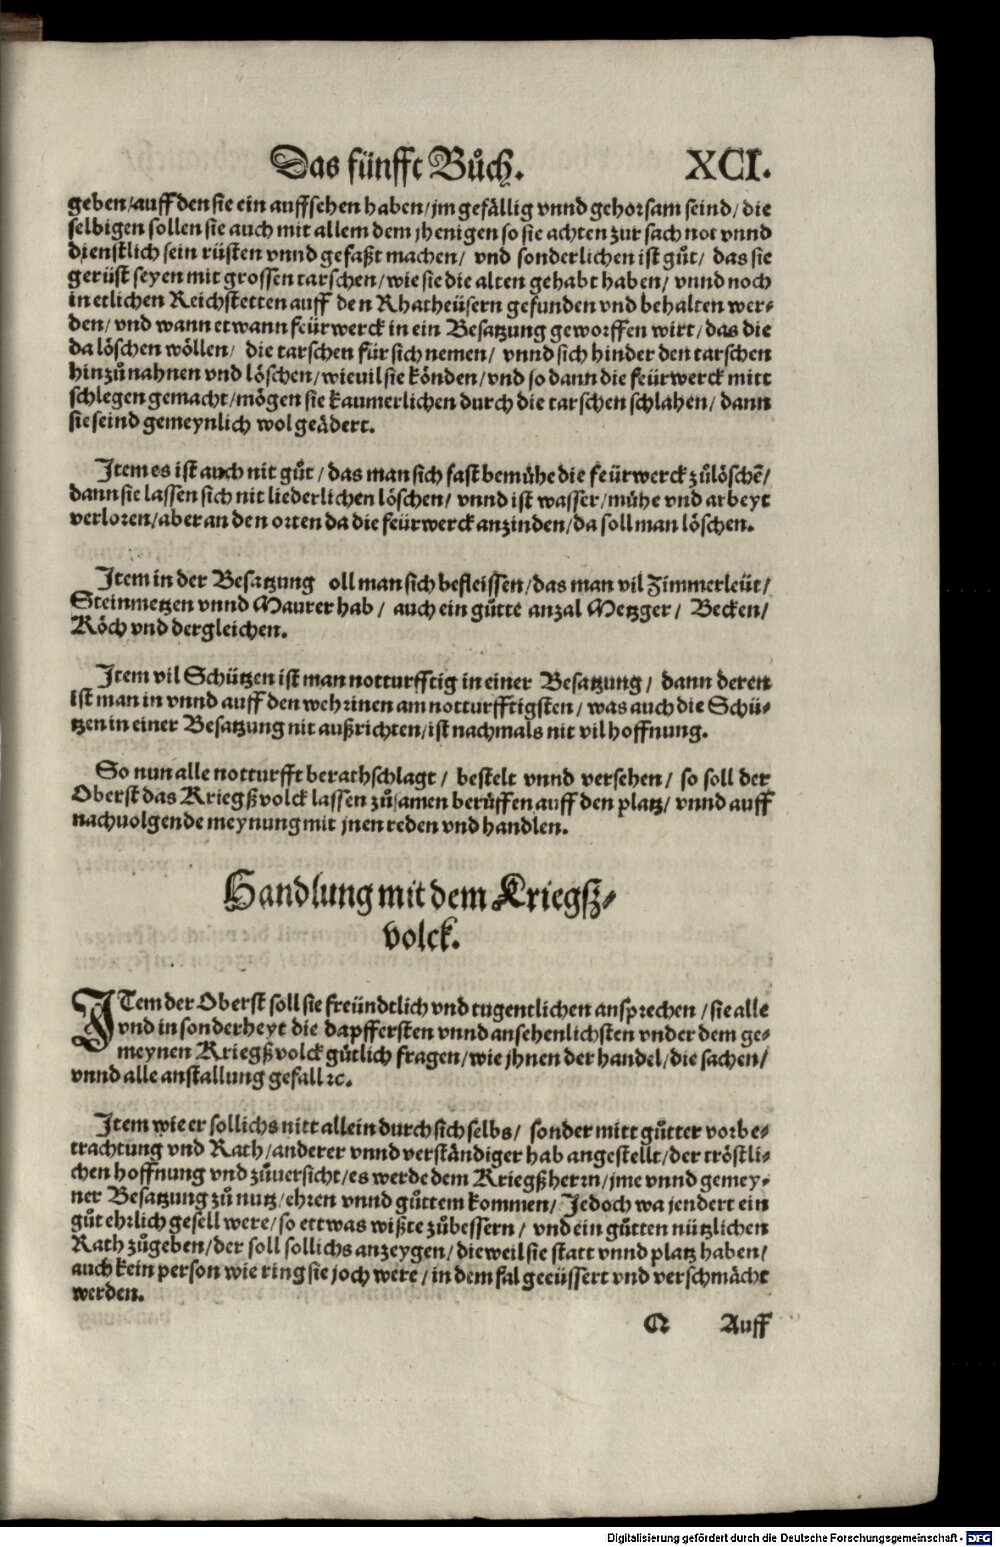 Das fünfft Bůch. XCI.
geben/auff den sie ein auffsehen haben/jm gefällig vnnd gehorsam seind/ die
selbigen sollen sie auch mit allem dem jhenigen so sie achten zur sach not vnnd
dienstlich sein rüsten vnnd gefaßt machen/ vnd sonderlichen ist gůt/ das sie
gerüst seyen mit grossen tarschen/wie sie die alten gehabt haben/ vnnd noch
in etlichen Reichstetten auff den Rhatheüsern gefunden vnd behalten wer⸗
den/vnd wann etwann feürwerck in ein Besatzung geworffen wirt/das die
da löschen wöllen/ die tarschen für sich nemen/ vnnd sich hinder den tarschen
hinzůnahnen vnd löschen/wieuil sie könden/vnd so dann die feürwerck mitt
schlegen gemacht/mögen sie kaumerlichen durch die tarschen schlahen/ dann
sie seind gemeynlich wol geädert.
Item es ist auch nit gůt/das man sich fast bemühe die feürwerck zůlöschē/
dann sie lassen sich nit liederlichen löschen/ vnnd ist wasser/mühe vnd arbeyt
verloren/aber an den orten da die feürwerck anzinden/da soll man löschen.
Item in der Besatzung oll man sich befleissen/das man vil Zimmerleüt/
Steinmetzen vnnd Maurer hab/ auch ein gůtte anzal Metzger/ Becken/
Köch vnd dergleichen.
Item vil Schützen ist man notturfftig in einer Besatzung/ dann deren
ist man in vnnd auff den wehrinen am notturfftigsten/was auch die Schü⸗
tzen in einer Besatzung nit außrichten/ist nachmals nit vil hoffnung.
So nun alle notturfft berathschlagt/ bestelt vnnd versehen/ so soll der
Oberst das Kriegßvolck lassen zůsamen berůffen auff den platz/ vnnd auff
nachuolgende meynung mit jnen reden vnd handlen.
Handlung mit dem Kriegß⸗
volck.
ITem der Oberst soll sie freündtlich vnd tugentlichen ansprechen/sie alle
vnd in sonderheyt die dapffersten vnnd ansehenlichsten vnder dem ge⸗
meynen Kriegßvolck gůtlich fragen/wie jhnen der handel/die sachen/
vnnd alle anstallung gefall ꝛc.
Item wie er sollichs nitt allein durch sich selbs/ sonder mitt gůtter vorbe⸗
trachtung vnd Rath/anderer vnnd verständiger hab angestellt/der tröstli⸗
chen hoffnung vnd zůuersicht/es werde dem Kriegßherrn/jme vnnd gemey⸗
ner Besatzung zů nutz/ehren vnnd gůttem kommen/ Jedoch wa jendert ein
gůt ehrlich gesell were/so ettwas wißte zůbessern/ vnd ein gůtten nützlichen
Rath zůgeben/der soll sollichs anzeygen/dieweil sie statt vnnd platz haben/
auch kein person wie ring sie joch were/in dem fal geeüssert vnd verschmächt
werden.
Q Auff
Digitalisierung gefördert durch die Deutsche Forschungsgemeinschaft - DFG